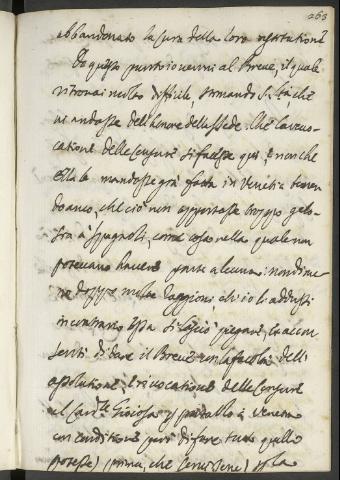 263
abbandonato la cura della loro restitutione
Da questo punto io venni al Breve, il quale
ritrovai molto difficile, stimando S. Stà, che
vi andasse dell'honore della sede. che la revo-
catione delle Censure si facesse qui, e non che
ella la mandasse già fatta in Venetia temen
do anco, che ciò non apportasse troppo gelo-
sia à spagnoli, come cosa nella quale non
potevano havere parte alcuna: nondime-
no doppo molte ragioni, ch'io li addussi
in contrario essa si lasciò piegare, et accon
sentì di dare il Breve con la facoltà dell'
assolutione, e revocatione delle Censure
al Car.le Gioiosa p portarlo à Venetia
con conditione però di fare tutto quello
potesse) prima, che servirsene) p la